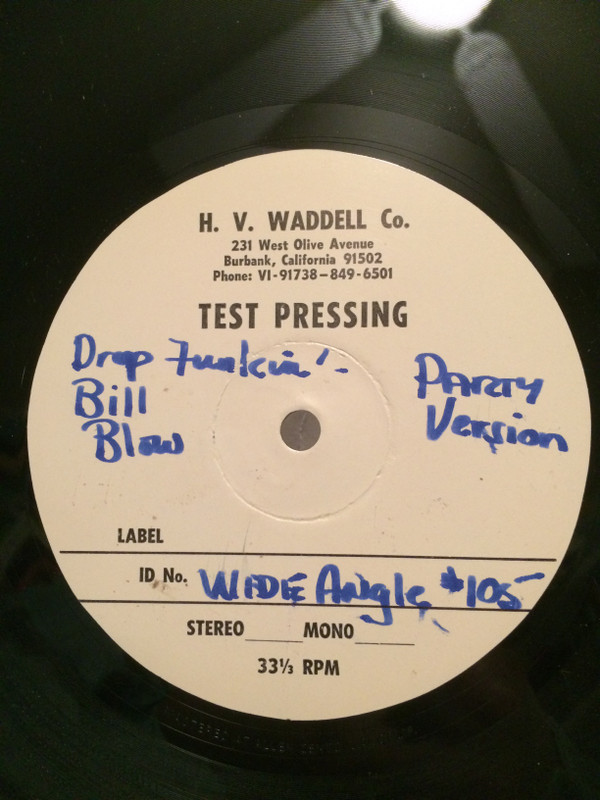 H. V. WADDELL Co.
231 West Olive Avenue
Burbank, California 91502
Phone: VI-91738-849-6501
TEST PRESSING
Drop Funkin' -
Bill
Blow
PARTY
Version
LABEL
ID No. WIDE Angle #105
STEREO MONO
33⅓ RPM